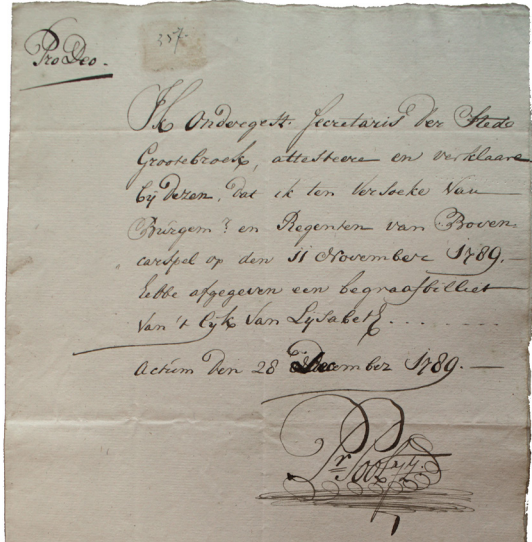 Pro Deo.
357.
Ik Ondergest. Secretaris der Stede
Grootebroek, attesteere en verklaare
bij dezen, dat ik ten versoeke van
Burgem.rs en Regenten van Boven
carspel op den 11 November 1789.
hebbe afgegeven een begraafbilliet
van 't Lijk van Lijsabet
Actum den 28 December 1789.
Pr